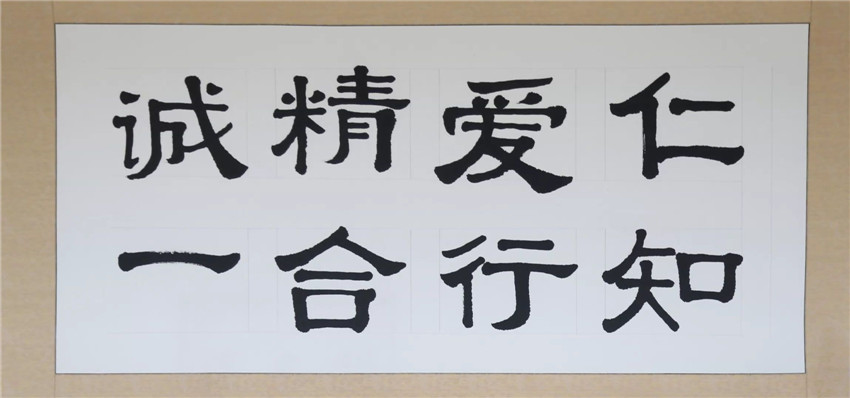 仁爱精诚
知行合一